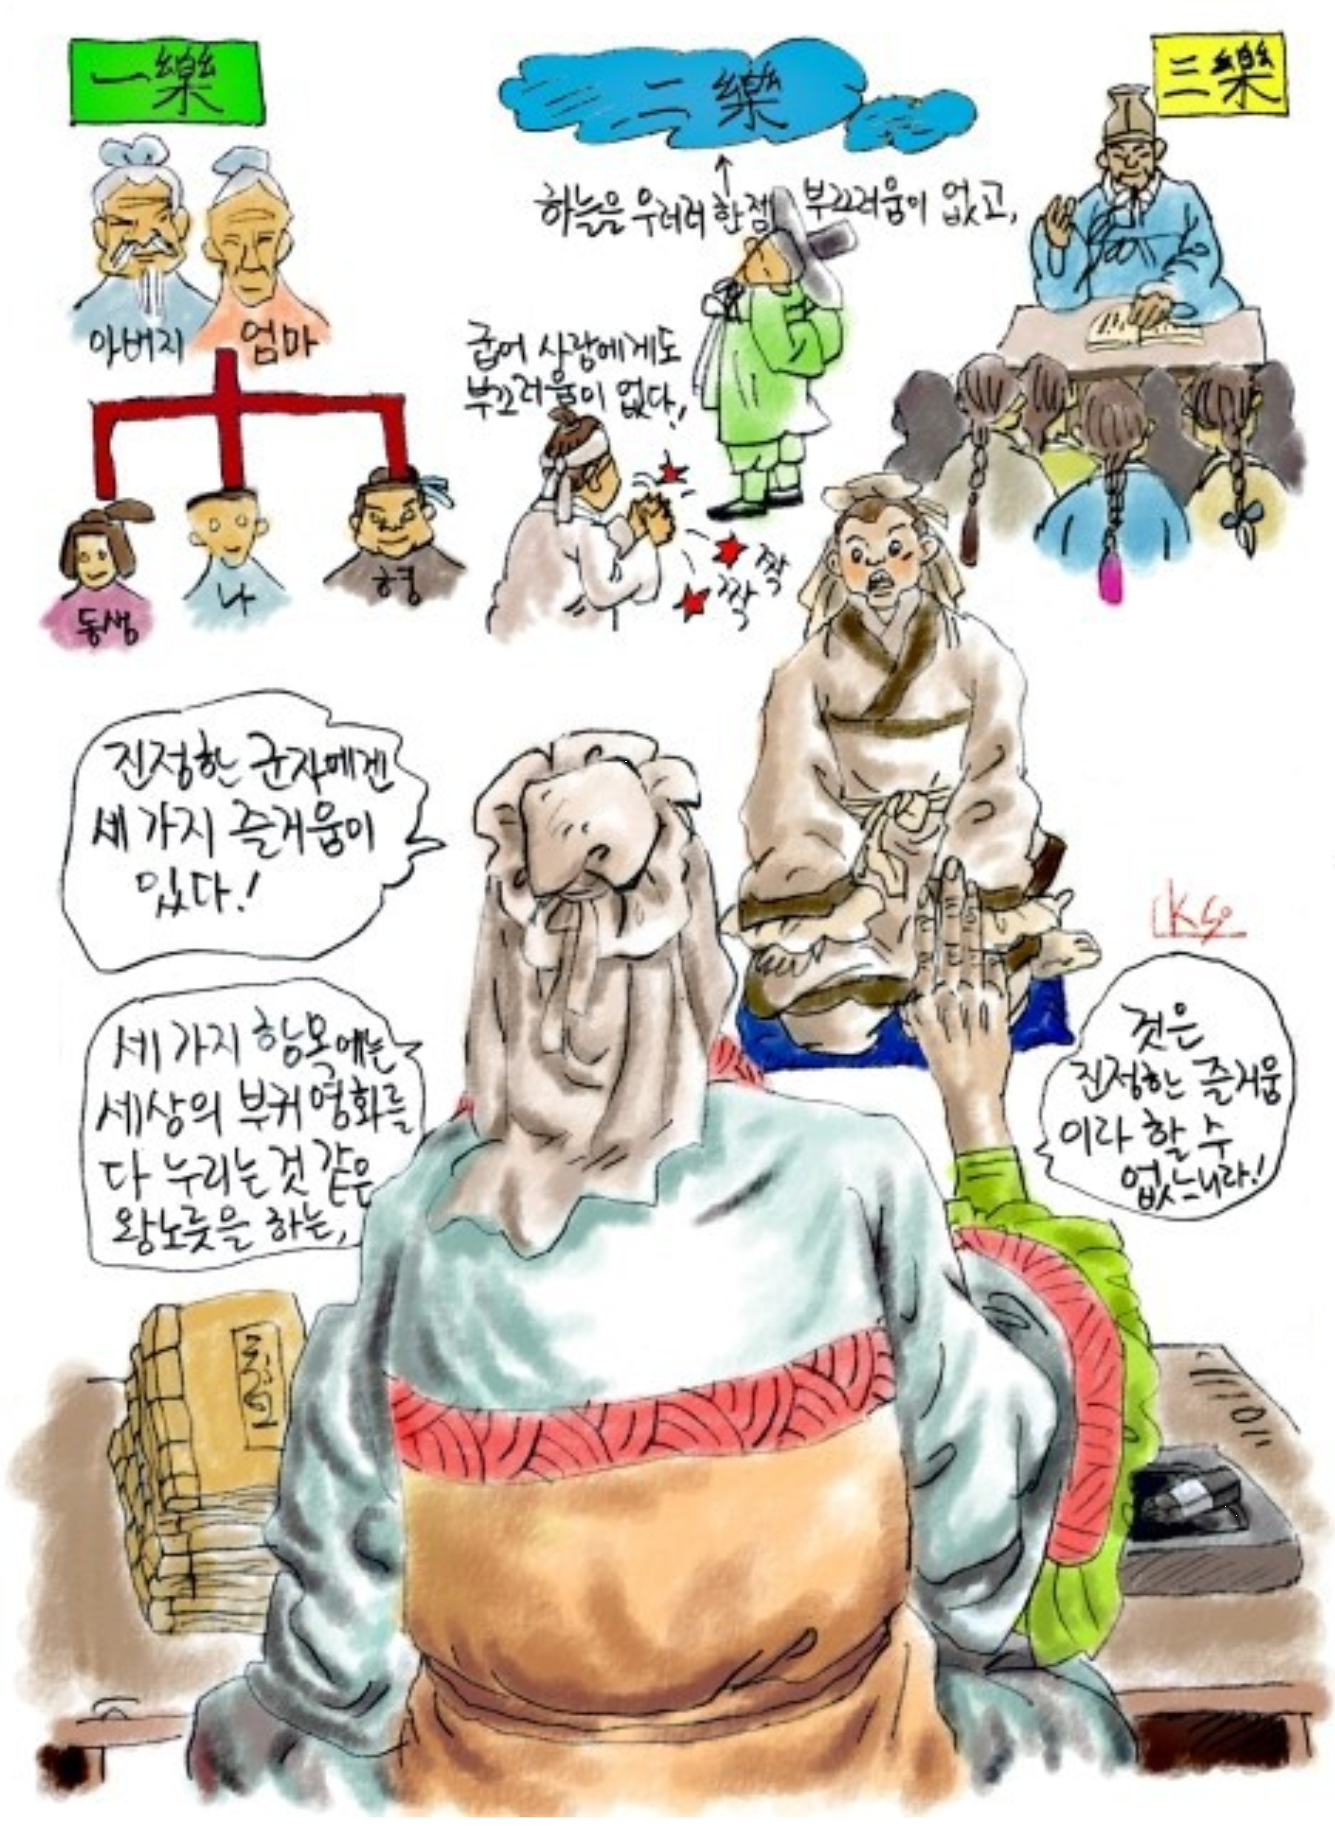 一樂
二樂
三樂
하늘을 우러러 한점 부끄러움이 없고,
굽어 사람에게도
부끄러움이 없다!
아버지 엄마
동생 나 형
짝 짝
진정한 군자에겐
세 가지 즐거움이
있다!
세 가지 항목에는
세상의 부귀영화를
다 누리는 것 같은
왕노릇을 하는,
것은
진정한 즐거움
이라 할 수
없느니라!